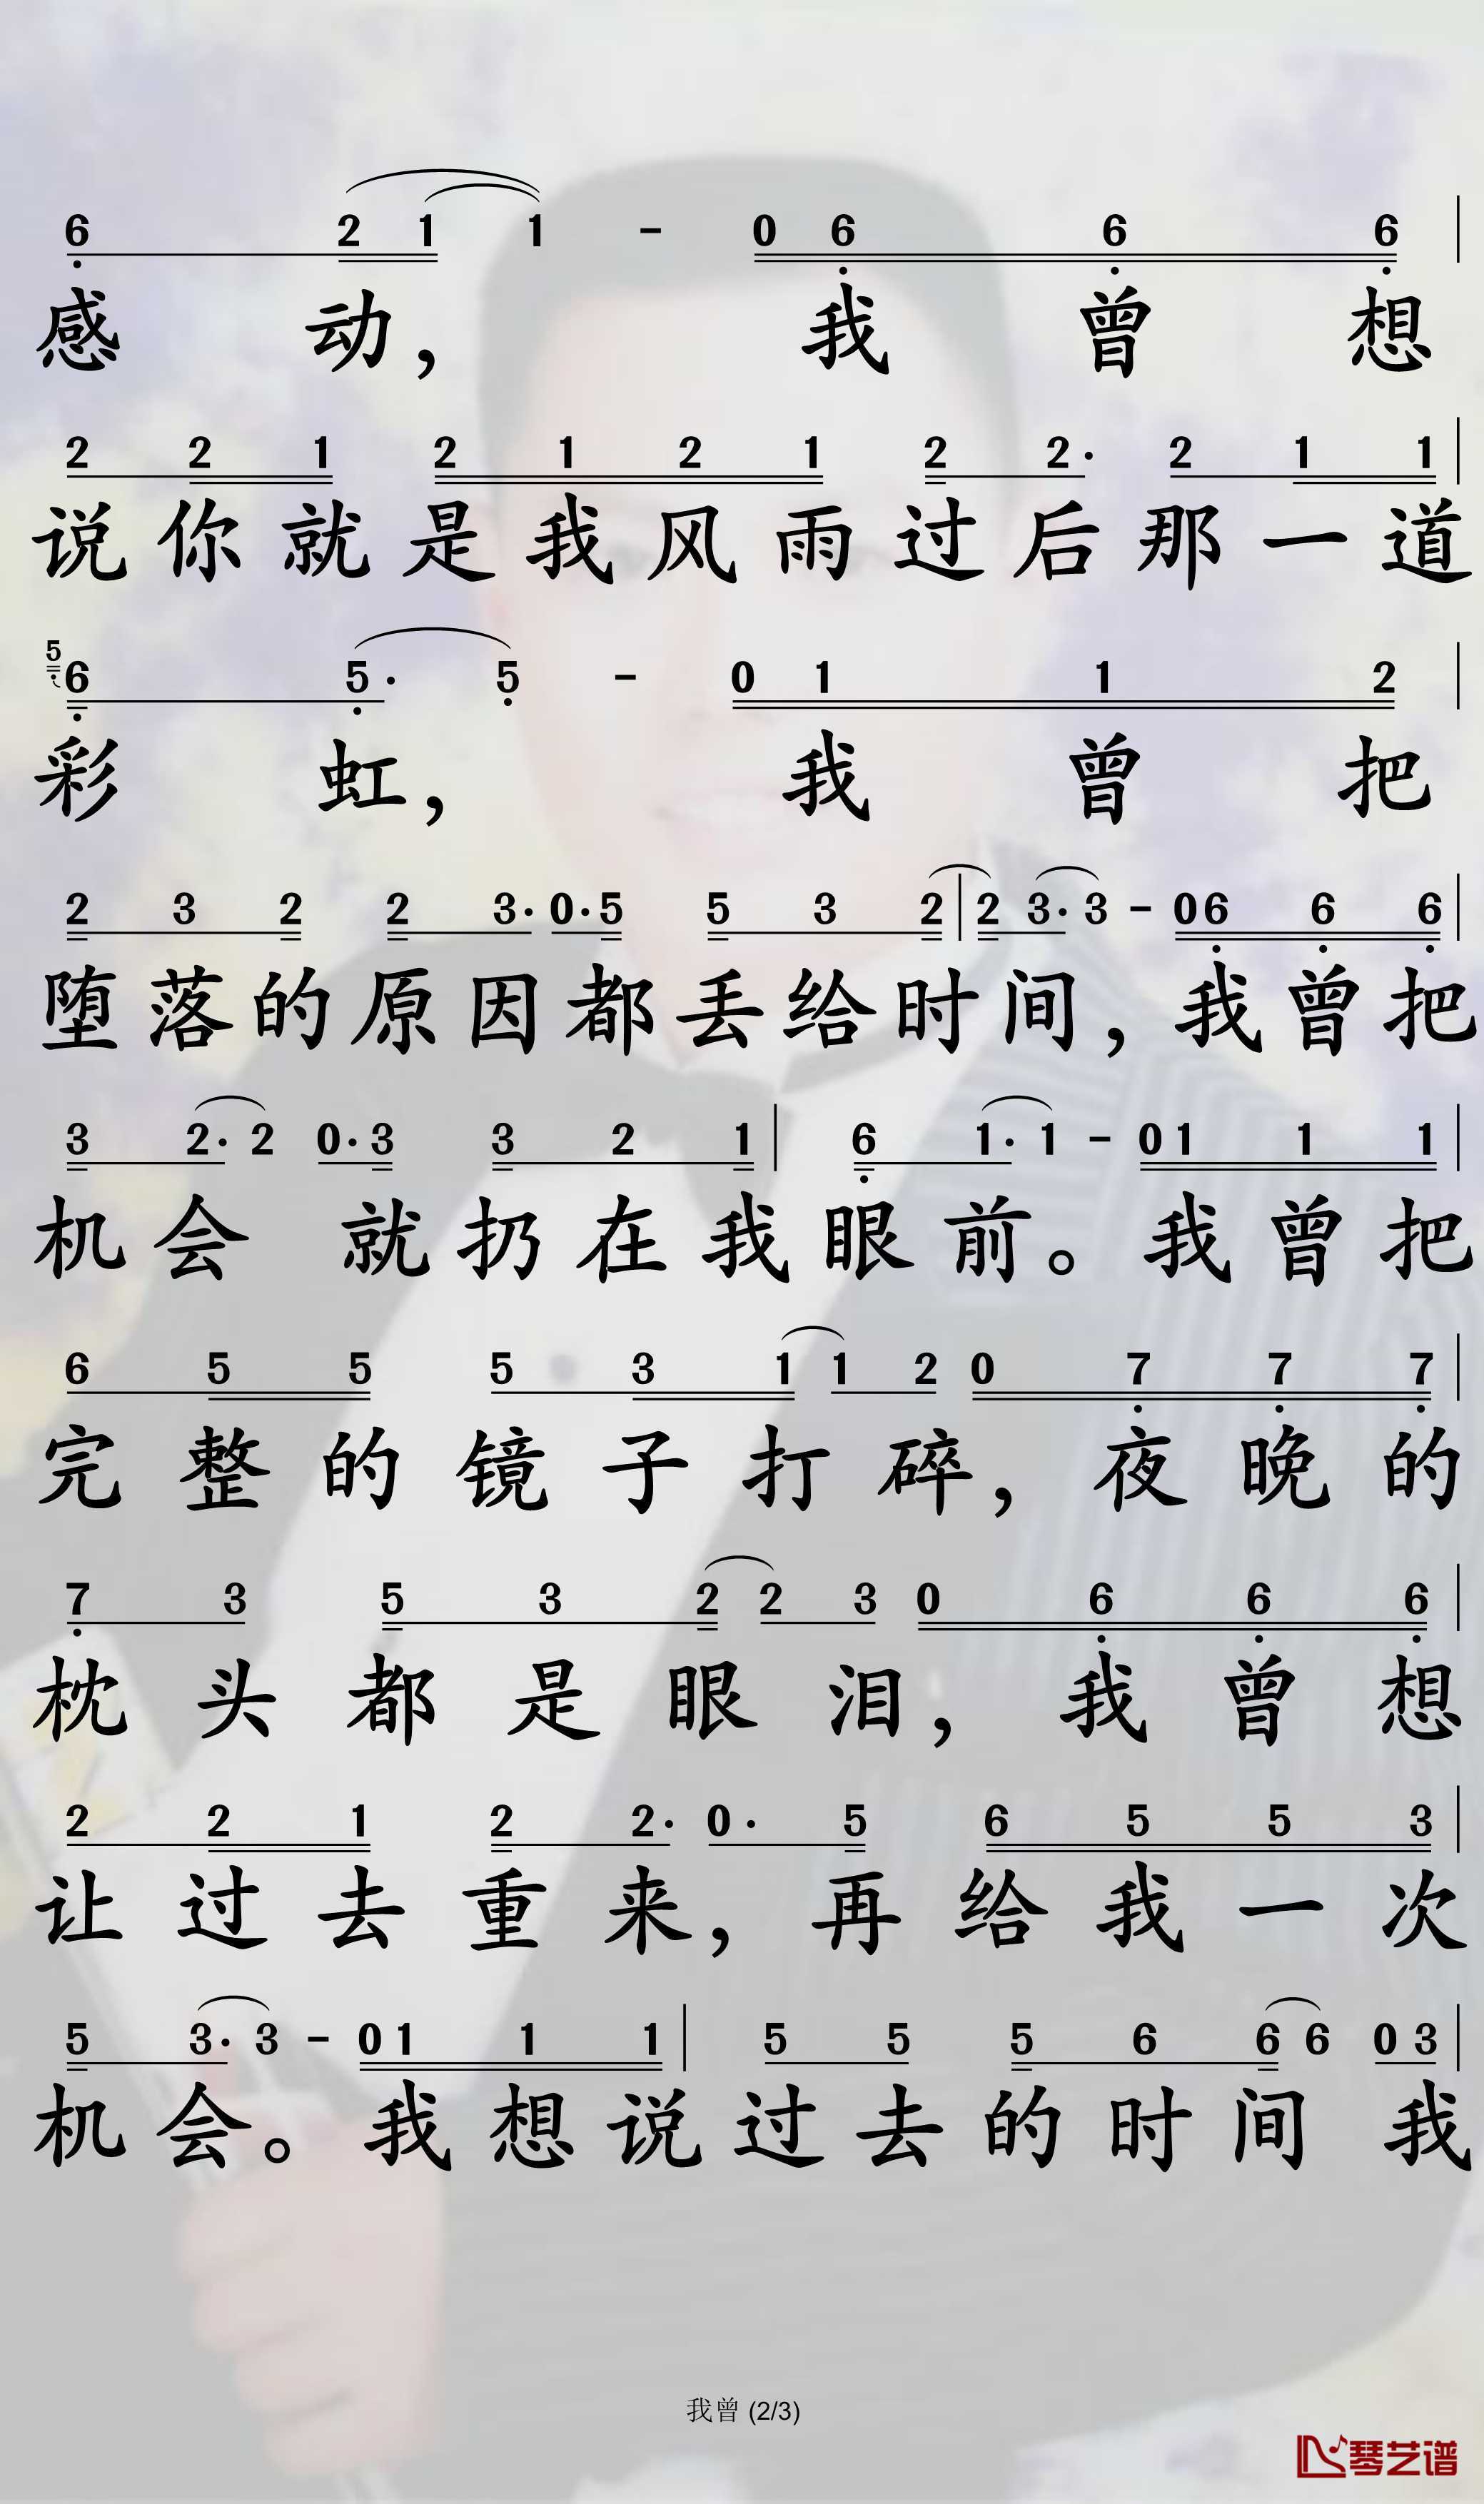 6 2 1 1 - 0 6 6 6
感动， 我曾想
2 2 1 2 1 2 1 2 2· 2 1 1
说你就是我风雨过后那一道
5 6 5· 5 - 0 1 1 2
彩虹， 我曾把
2 3 2 2 3· 0· 5 5 3 2 | 2 3· 3 - 0 6 6 6
堕落的原因都丢给时间，我曾把
3 2· 2 0· 3 3 2 1 | 6 1· 1 - 0 1 1 1
机会 就扔在我眼前。我曾把
6 5 5 5 3 1 1 2 0 7 7 7
完整的镜子打碎，夜晚的
7 3 5 3 2 2 3 0 6 6 6
枕头都是眼泪，我曾想
2 2 1 2 2· 0· 5 6 5 5 3
让过去重来，再给我一次
5 3· 3 - 0 1 1 1 | 5 5 5 6 6 6 0 3
机会。我想说过去的时间 我
我曾 (2/3)
琴艺谱